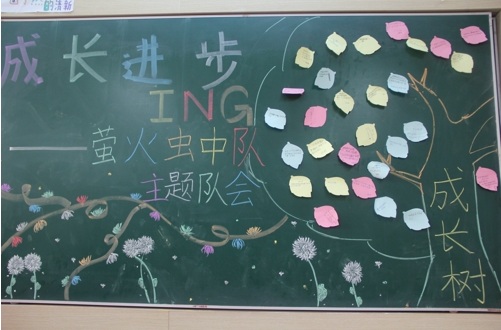 的清新
成长进步
ING
——萤火虫中队
主题队会
成长树